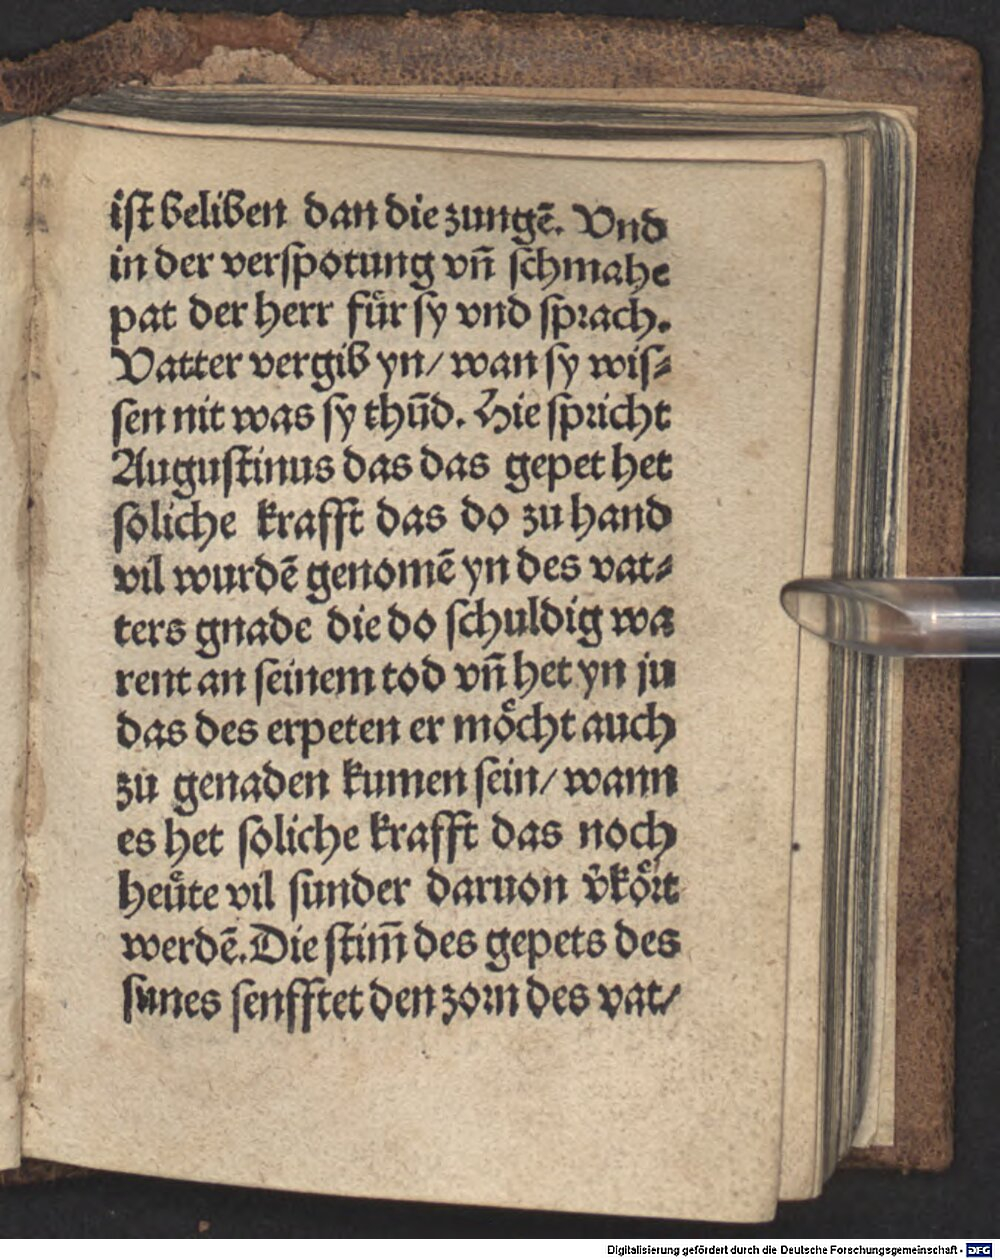 ist beliben dan die zungē. Vnd
in der verspotung vn̄ schmahe
pat der herr fuͤr sy vnd sprach.
Vatter vergib yn/ wan sy wis⸗
sen nit was sy thūd. Hie spricht
Augustinus das das gepet het
soliche krafft das do zu hand
vil wurdē genomē yn des vat⸗
ters gnade die do schuldig wa
rent an seinem tod vn̄ het yn ju
das des erpeten er moͤcht auch
zu genaden kumen sein/ wann
es het soliche krafft das noch
heuͤte vil sunder daruon v̉koͤrt
werdē. Die stim̄ des gepets des
sunes senfftet den zorn des vat/
Digitalisierung gefördert durch die Deutsche Forschungsgemeinschaft - DFG